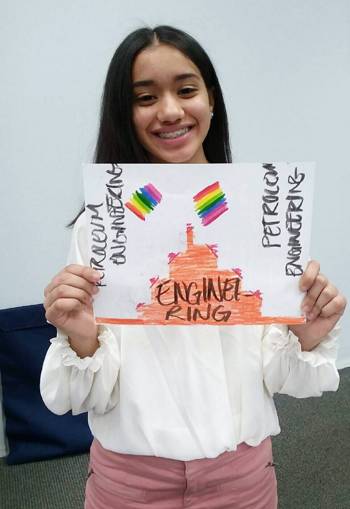 PETROLEUM
ENGINEERING
ENGINEE-
RING
PETROLEUM
ENGINEERING